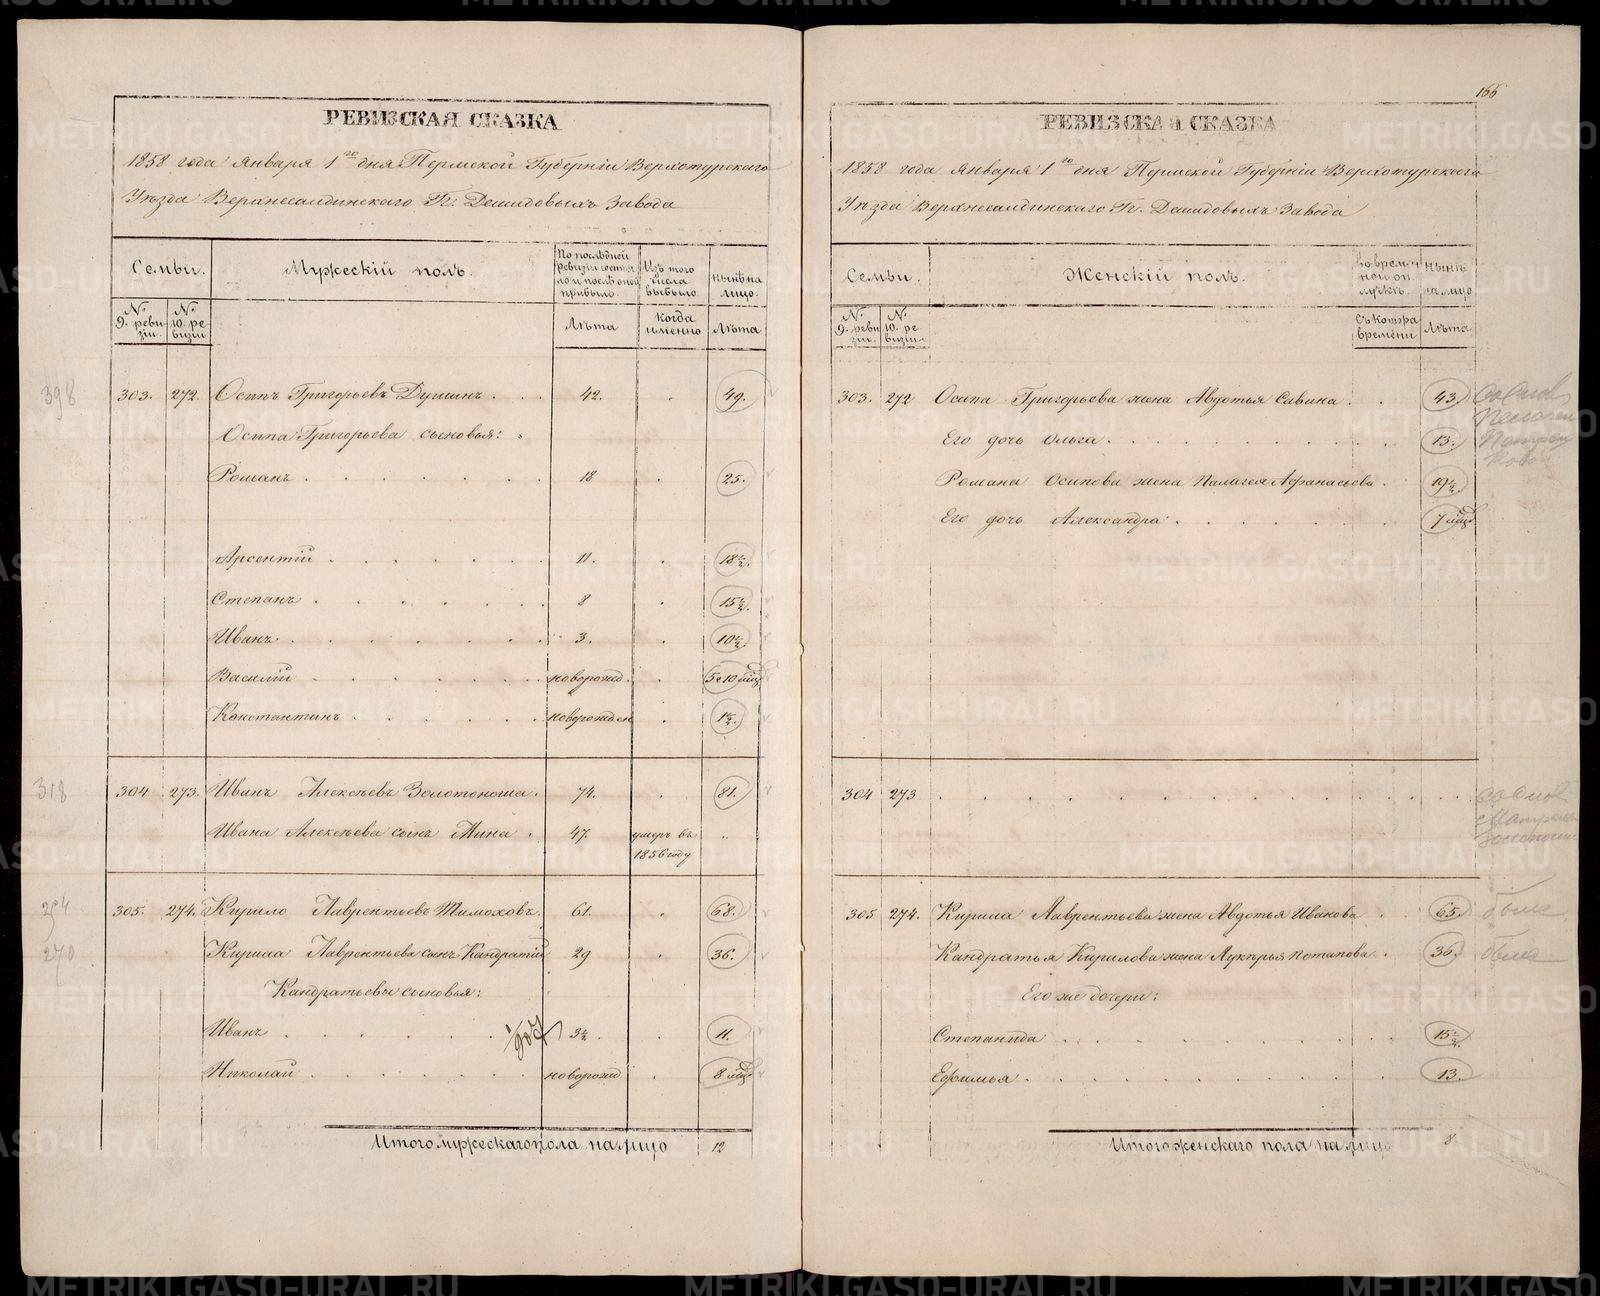 166
РЕВИЗСКАЯ СКАЗКА
1858 года Января 1го дня Пермской Губерніи Верхотурскаго
Уѣзда Верхнесалдинскаго Гг. Демидовыхъ Завода
Семьи.
Мужескій полъ.
По послѣдней ревизіи состояло и послѣ оной прибыло.
Изъ того числа выбыло
нынѣ на лицо.
№ 9. ревизіи.
№ 10. ревизіи
Лѣта
Когда именно
Лѣта
398
303. 272. Осипъ Григорьевъ Душинъ . . . 42. . 49.
Осипа Григорьева сыновья:
Романъ . . . . . . . 18 . 25.
Арсентій . . . . . . 11. . 18½.
Степанъ . . . . . . 8 . 15½.
Иванъ . . . . . . . 3. . 10½.
Василій . . . . . . новорожд. . 5 и 10 мѣс.
Константинъ . . . . . новорожден . 1½.
318
304 273. Иванъ Алексѣевъ Золотоноша. 74. . 81.
Ивана Алексѣева сынъ Мина . 47. умеръ въ ..
1856 году
305. 274. Кирило Лаврентьевъ Тимоховъ. 61. . 68.
270
Кирила Лаврентьева сынъ Кандратій 29 . 36.
Кандратьевы сыновья:
Иванъ . . . . . . 3½. . 11.
Николай . . . . . . новорожд . 8 мѣс.
Итого мужескаго пола на лицо 12
РЕВИЗСКАЯ СКАЗКА
1858 года Января 1го дня Пермской Губерніи Верхотурскаго
Уѣзда Верхнесалдинскаго Гг. Демидовыхъ Завода
Семьи.
Женскій полъ.
Во временной отлучкѣ.
нынѣ на лицо
№ 9. ревизіи.
№ 10. ревизіи.
Съ котора времени
Лѣта.
303. 272 Осипа Григорьева жена Авдотья Савина . . 43
Его дочь Ольга . . . . . . . . 13.
Романа Осипова жена Палагея Афанасьева . 19½.
Его дочь Александра . . . . . . 7 мѣс
304 273 . . . . . . . . . . . . .
305 274. Кирила Лаврентьева жена Авдотья Иванова . . 65.
Кандратья Кирилова жена Лукерья Потапова . . 36.
Его же дочери:
Степанида . . . . . . . . 15½.
Ефимья . . . . . . . . 13.
Итого женскаго пола на лицо 8
METRIKI.GASO-URAL.RU